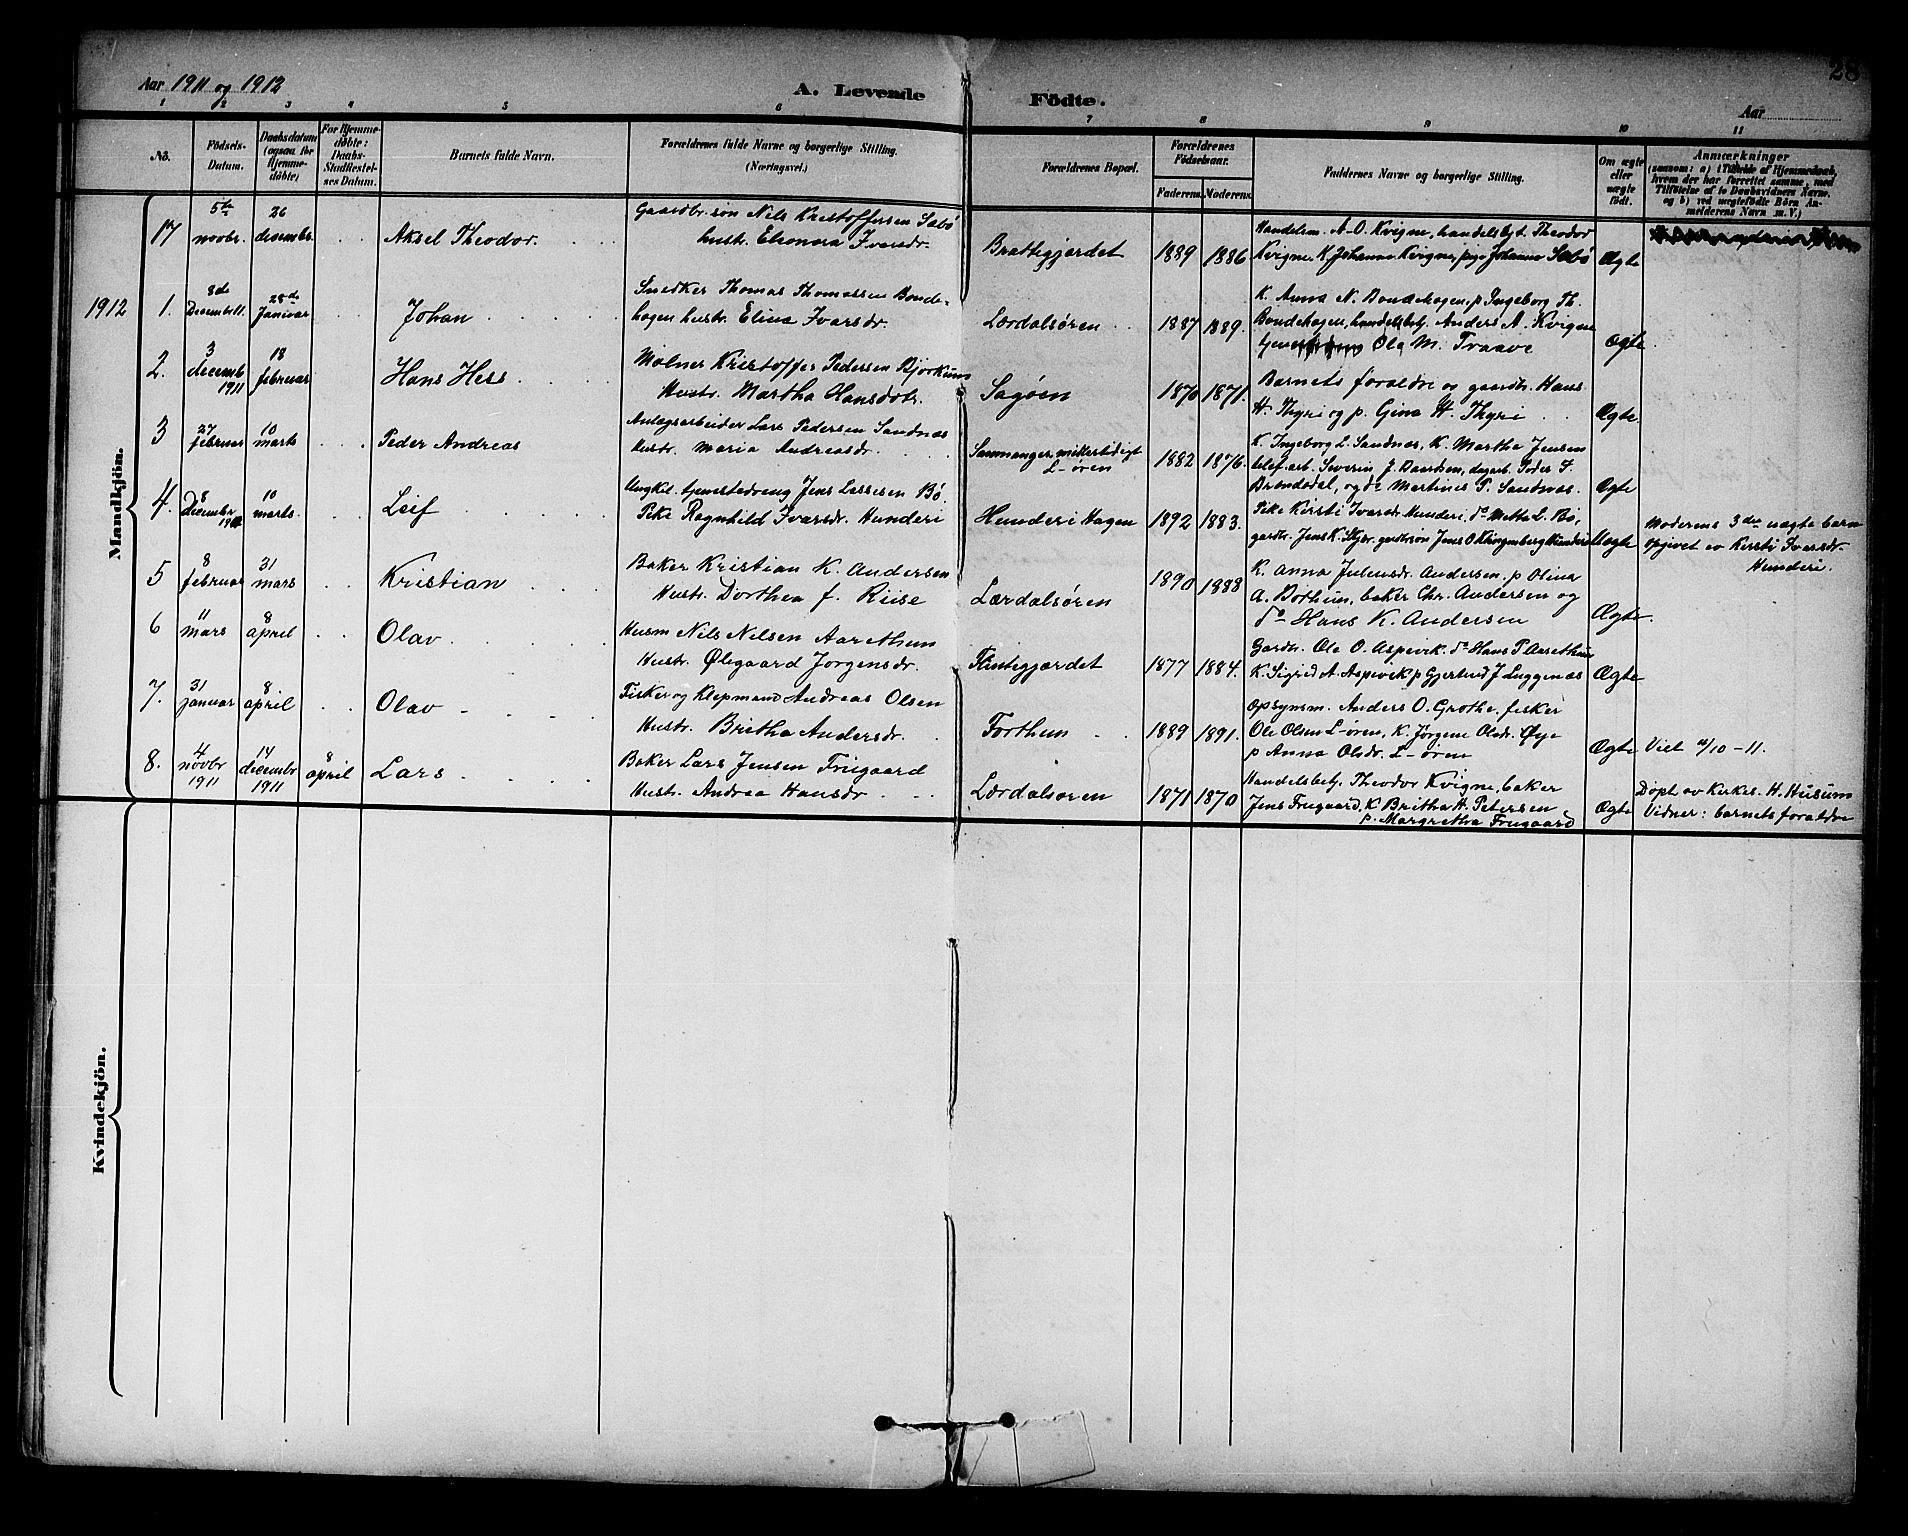 28
Aar 1911 og 1912
A. Levende Födte.
Aar
1 2 3 4 5 6 7 8 9 10 11
No.
Födsels-Datum.
Daabsdatum (ogsaa for Hjemmedöbte)
For Hjemmedöbte: Daabs-Stadfæstelses Datum.
Barnets fulde Navn.
Forældrenes fulde Navne og borgerlige Stilling.
(Næringsvei.)
Forældrenes Bopæl.
Forældrenes Födselsaar.
Faderens. Moderens.
Faddernes Navne og borgerlige Stilling.
Om ægte eller uægte födt.
Anmærkninger
(saasom: a) i Tilfælde af Hjemmedaab,
hvem der har forrettet samme, med
Tilföielse af to Daabsvidners Navne.
og b) ved uægtefödte Börn An-
melderens Navn m. V.)
Mandkjön.
17 5te novbr. 26 desembr. Aksel Theodor.
Gaardbr. søn Nils Kristoffersen Sæbö
hustr. Elenora Ivarsdr.
Brattegjerdet 1889 1886
Handelsm. A. O. Kvigne, handelsbyt. Theodor
Kvigne, K. Johanne Kvigne, pige Johanne Sæbö
Ægte
1912
1. 8de Decemb. 11. 28de Januar Johan
Snedker Thomas Thomassen Bonde-
hagen hustr. Elina Ivarsdr.
Lærdalsören 1887 1889.
K. Anna N. Bondehagen, p Ingeborg Th.
Bondehagen, handelsbetj. Anders A. Kvigne
Ole M. Traave
Ægte.
2. 3 decemb 1911 18 februar Hans Hess
Mölner Kristoffer Pedersen Bjørkum
Hustr. Martha Hansdtr.
Sagöen 1870 1871.
Barnets foraldre og gaardbr. Hans
H. Thyri og p. Gina H. Thyri
Ægte.
3 27 februar 10 marts Peder Andreas
Anlægsarbeider Lars Pedersen Sandnæs
Hustr. Maria Andreasdr.
Sammanger, midlertidigt
L-ören 1882 1876.
K. Ingeborg L. Sandnæs, K. Martha Jensen
telef. arb. Severin J. Baardsen, dagarb. Peder S.
Brondødal, og do Martines P. Sandnæs.
Ægte
4. 8 December 10 marts. Leif
Ungkl. tjenestedreng Jens Lassesen Bö
Pike Ragnhild Ivarsdr. Hunderi
Hunderi Hagen 1892 1883.
Pike Kirsti Ivarsdr. Hunderi, do Metta L. Bö,
gardbr. Jens K. gardbrsön Jens O Klingenberg Hunderi
Uægte
Moderens 3die uægte barn
opgivet av Kersti Ivarsdr.
Hunderi.
5 8 februar 31 mars Kristian
Baker Kristian K. Andersen
Hustr. Dorthea f. Riise
Lærdalsören 1890 1888
K. Anna Julensdr. Andersen, p Olina
A. Bothun, baker Chr. Andersen og
do Hans K. Andersen
Ægte.
6 11 mars 8 april Olav
Husm Nils Nilsen Aarethun
Hustr. Ølegaard Jörgensdr.
Flintegjærdet 1877 1884.
Gardbr. Ole O. Aspevik. do Hans P. Aarethun
K. Sigrid A. Aspevik p Gjertrud J Luggenæs
Ægte
7. 31 januar 8 april Olav
Fisker og Klepmand Andreas Olsen
Hustr. Britha Andersdr.
Forthun 1889 1891.
Opsynsm. Anders O. Grothe, fisker
Ole Olsen L-ören, K. Jörgine Olsdr. Øye
p Anna Olsdr. L-ören
Ægte Viet 4/10-11.
8. 4 novbr 1911 14 decembr 1911 8 april Lars
Baker Lars Jensen Frugaard
Hustr. Andrea Hansdr
Lærdalsören 1871 1870
Handelsbetj. Theodor Kvigne, baker
Jens Frugaard, K Britha H. Petersen
p. Margretha Frugaard
Ægte
Döpt av Kirkes. H. Husum
Vidner: barnets foraldre
Kvindekjön.